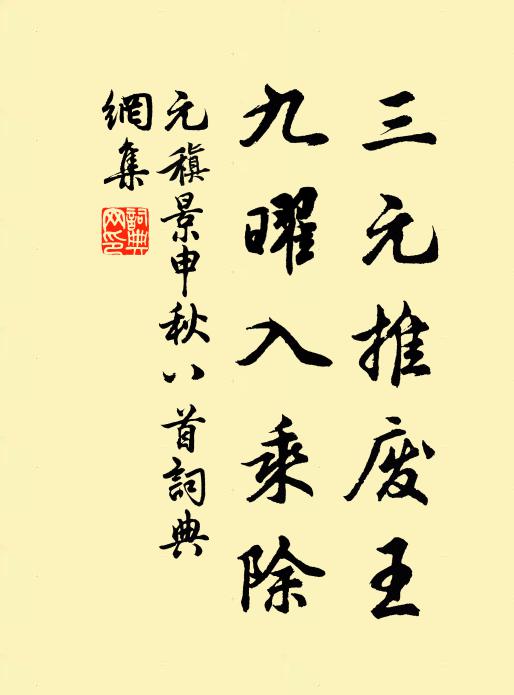 三元推废王
九曜入乘除
元稹景申秋八首詞典
網集
詞典
网印